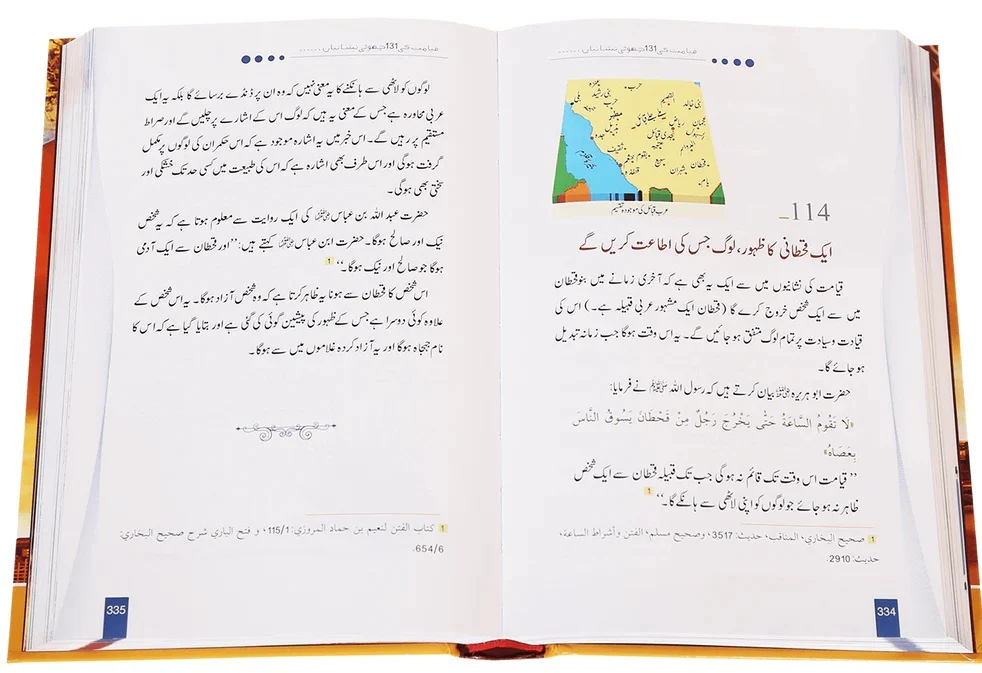 قیامت کی 131 چھوٹی نشانیاں ......
عرب قبائل کی موجودہ تقسیم
114_
ایک قحطانی کا ظہور، لوگ جس کی اطاعت کریں گے
قیامت کی نشانیوں میں سے ایک یہ بھی ہے کہ آخری زمانے میں بنوقحطان
میں سے ایک شخص خروج کرے گا (قحطان ایک مشہور عربی قبیلہ ہے۔) اس کی
قیادت وسیادت پر تمام لوگ متفق ہو جائیں گے۔ یہ اس وقت ہوگا جب زمانہ تبدیل
ہو جائے گا۔
حضرت ابو ہریرہ رضی اللہ عنہ بیان کرتے ہیں کہ رسول اللہ ﷺ نے فرمایا:
«لَا تَقُومُ السَّاعَةُ حَتَّى يَخْرُجَ رَجُلٌ مِنْ قَحْطَانَ يَسُوقُ النَّاسَ
بِعَصَاهُ»
’’قیامت اس وقت تک قائم نہ ہوگی جب تک قبیلہ قحطان سے ایک شخص
ظاہر نہ ہو جائے جو لوگوں کو اپنی لاٹھی سے ہانکے گا۔‘‘ 1
1 صحيح البخاري، المناقب، حديث: 3517، وصحيح مسلم، الفتن وأشراط الساعة،
حديث: 2910.
334
قیامت کی 131 چھوٹی نشانیاں ......
لوگوں کو لاٹھی سے ہانکنے کا یہ معنی نہیں کہ وہ ان پر ڈنڈے برسائے گا بلکہ یہ ایک
عربی محاورہ ہے جس کے معنی یہ ہیں کہ لوگ اس کے اشارے پر چلیں گے اور صراط
مستقیم پر رہیں گے۔ اس خبر میں یہ اشارہ موجود ہے کہ اس حکمران کی لوگوں پر مکمل
گرفت ہوگی اور اس طرف بھی اشارہ ہے کہ اس کی طبیعت میں کسی حد تک خشکی اور
سختی بھی ہوگی۔
حضرت عبد اللہ بن عباس رضی اللہ عنہما کی ایک روایت سے معلوم ہوتا ہے کہ یہ شخص
نیک اور صالح ہوگا۔ حضرت ابن عباس رضی اللہ عنہما کہتے ہیں: ’’اور قحطان سے ایک آدمی
ہوگا جو صالح اور نیک ہوگا۔‘‘ 1
اس شخص کا قحطان سے ہونا یہ ظاہر کرتا ہے کہ وہ شخص آزاد ہوگا۔ یہ اس شخص کے
علاوہ کوئی دوسرا ہے جس کے ظہور کی پیشین گوئی کی گئی ہے اور بتایا گیا ہے کہ اس کا
نام جہجاہ ہوگا اور یہ آزاد کردہ غلاموں میں سے ہوگا۔
1 كتاب الفتن لنعيم بن حماد المروزي: 115/1، و فتح الباري شرح صحيح البخاري:
654/6.
335